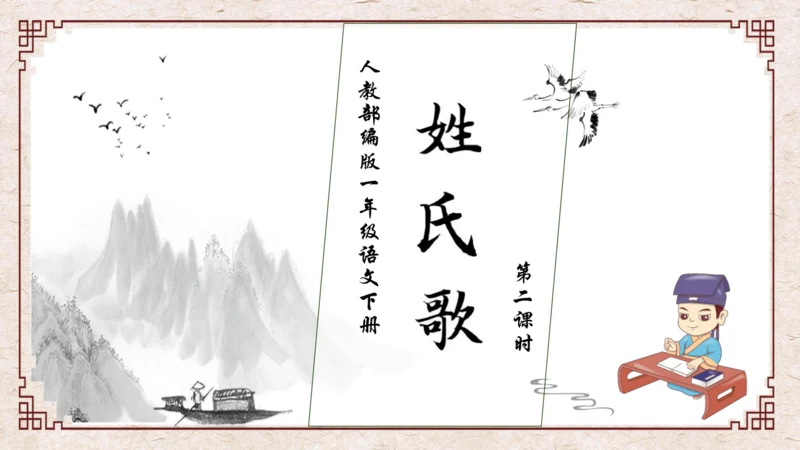 人教部编版一年级语文下册
姓氏歌
第二课时